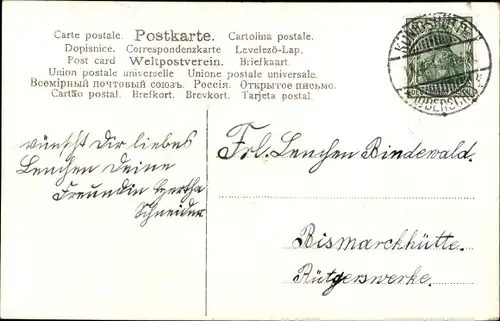 Carte postale. Postkarte. Cartolina postale.
Dopisnice. Correspondenzkarte Levelező-Lap.
Post card Weltpostverein. Briefkaart.
Union postale universelle Unione postale universale.
Всемірный почтовый союзъ. Россія. Открытое письмо.
Cartão postal. Brefkort. Brevkort. Tarjeta postal.
KÖNIGSHÜTTE
OBERSCHL.
wünscht Dir liebes
Lenchen Deine
Freundin Hertha
Schneider
Frl. Lenchen Bindewald.
Bismarckhütte.
Rütgerswerke.